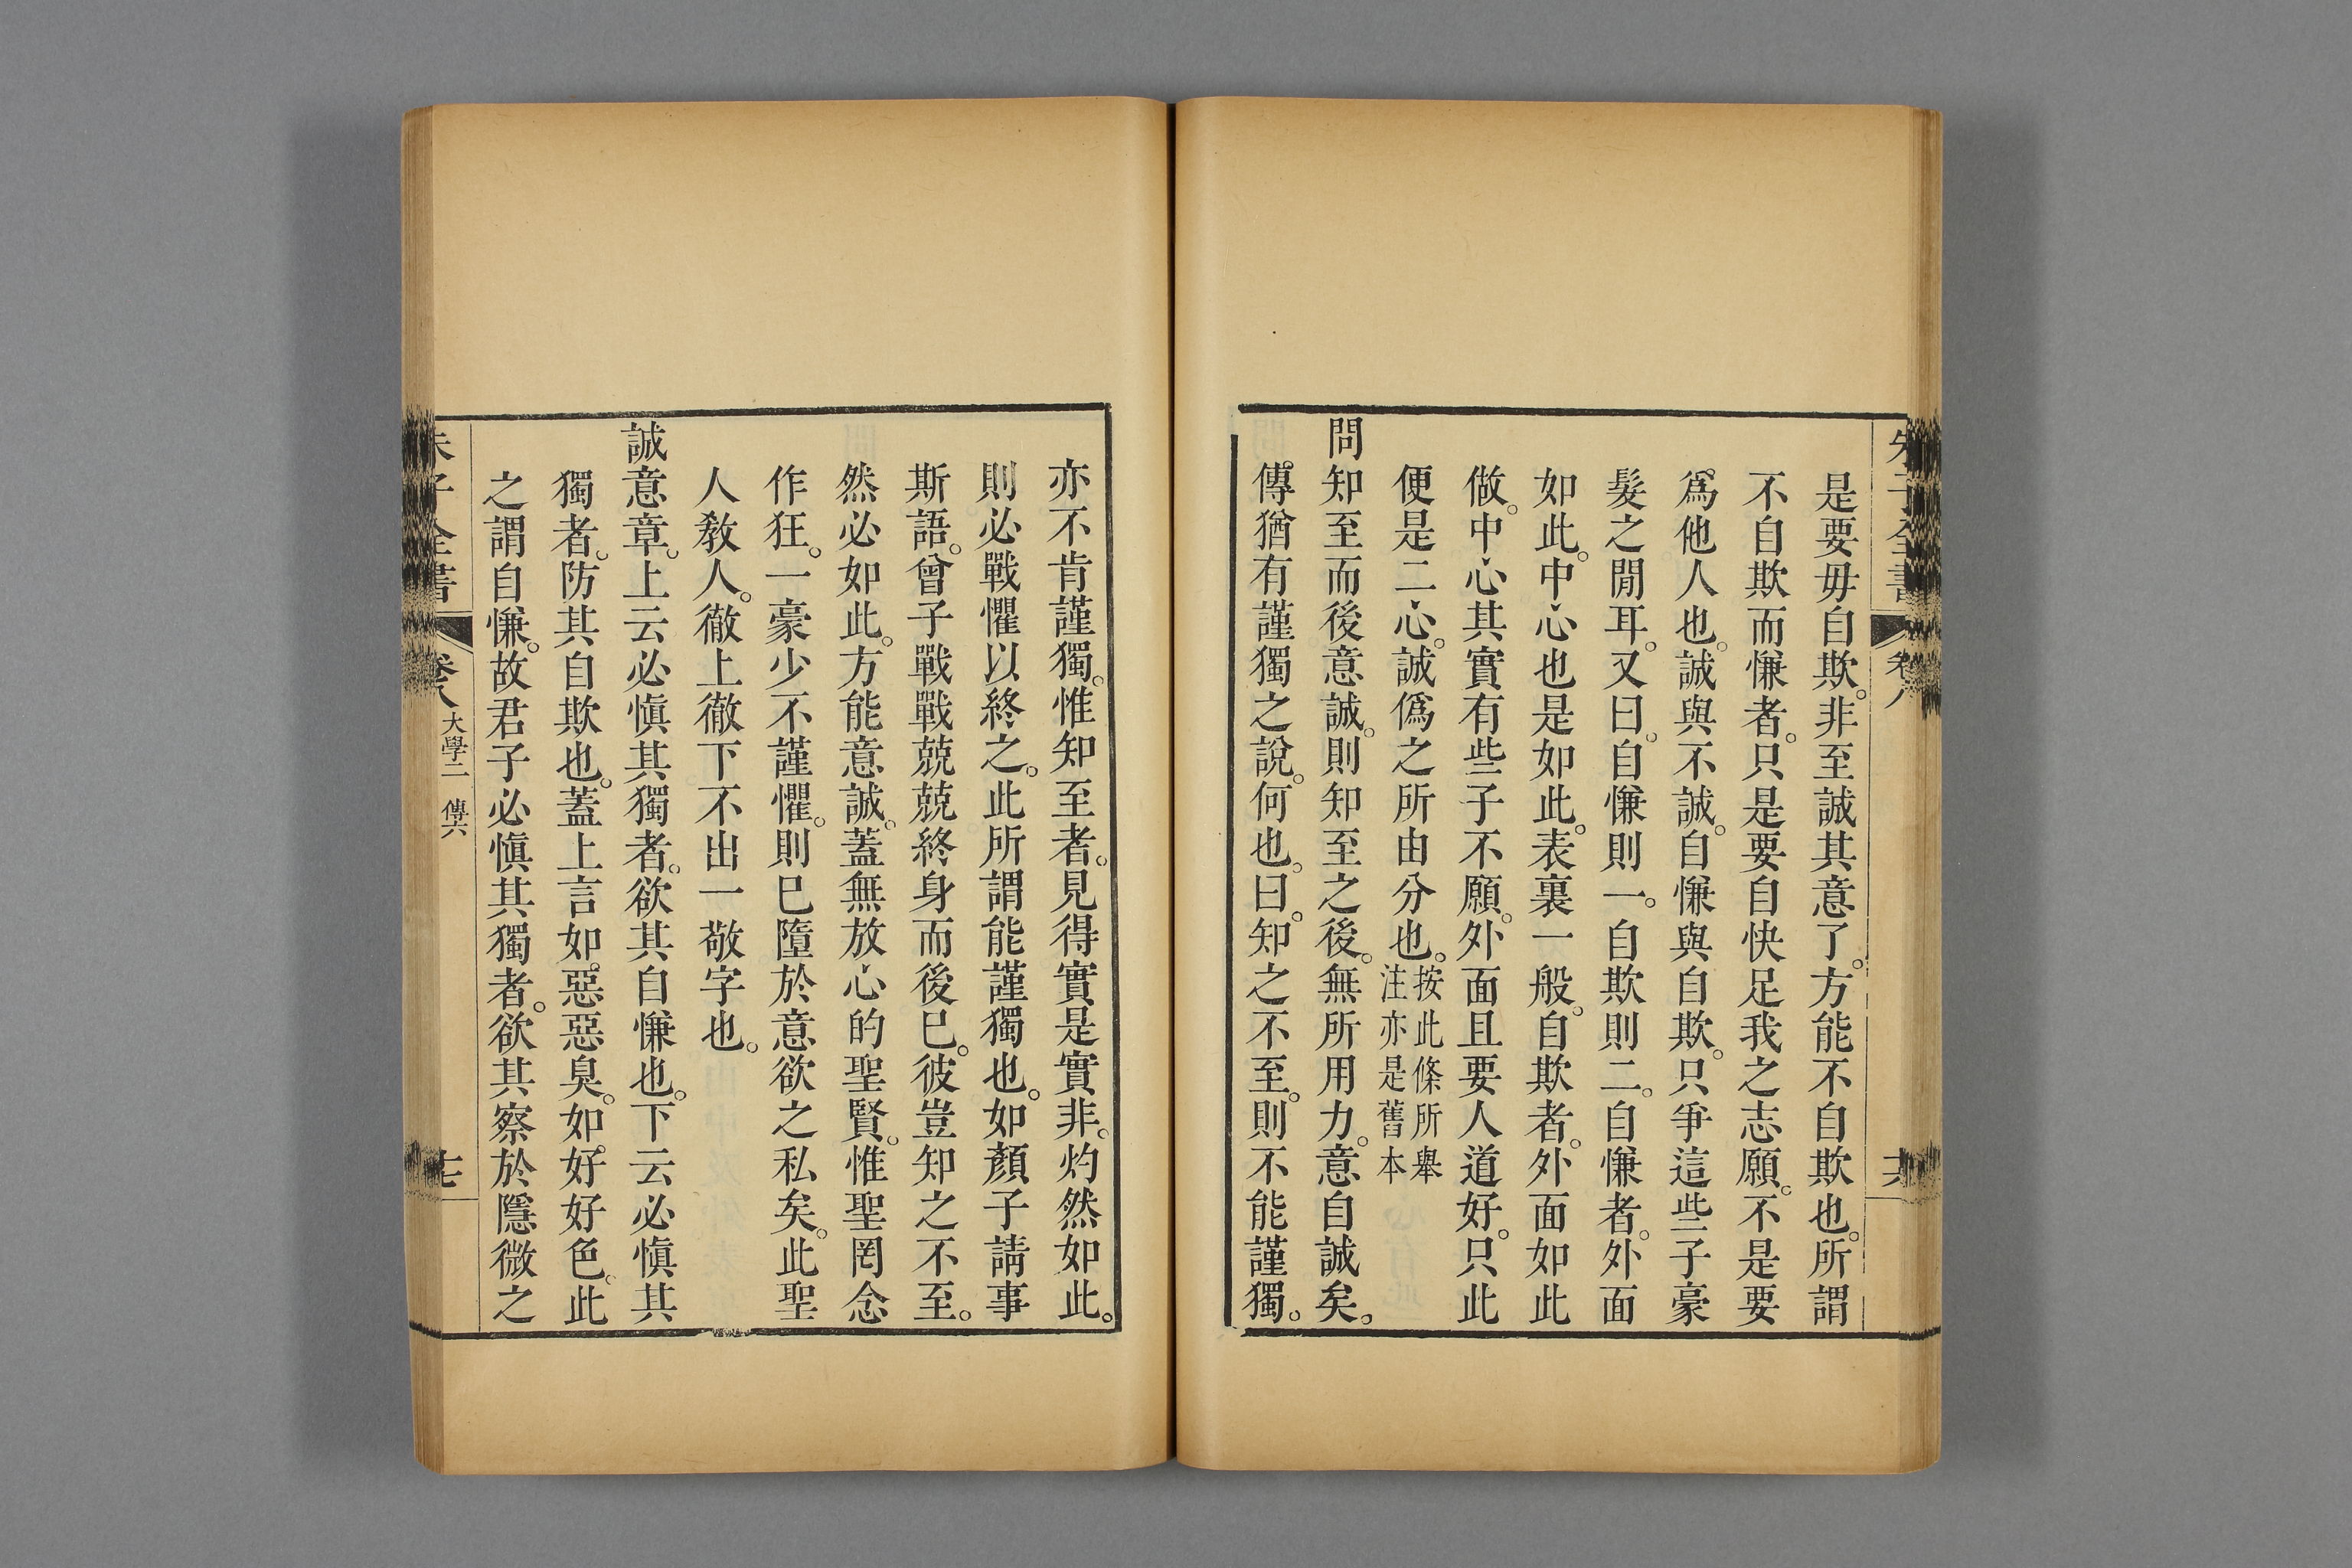 朱子全書 卷八 十六
是要毋自欺。非至誠其意了。方能不自欺也。所謂
不自欺而慊者。只是要自快足我之志願。不是要
爲他人也。誠與不誠。自慊與自欺。只爭這些子豪
髮之閒耳。又曰。自慊則一。自欺則二。自慊者。外面
如此。中心也是如此。表裏一般。自欺者。外面如此
做。中心其實有些子不願。外面且要人道好。只此
便是二心。誠僞之所由分也。按此條所舉
注亦是舊本
問知至而後意誠。則知至之後。無所用力。意自誠矣。
傳猶有謹獨之說。何也。曰。知之不至。則不能謹獨。
亦不肯謹獨。惟知至者。見得實是實非。灼然如此。
則必戰懼以終之。此所謂能謹獨也。如顏子請事
斯語。曾子戰戰兢兢終身而後已。彼豈知之不至。
然必如此。方能意誠。蓋無放心的聖賢。惟聖罔念
作狂。一豪少不謹懼。則已墮於意欲之私矣。此聖
人教人。徹上徹下不出一敬字也。
誠意章。上云必愼其獨者。欲其自慊也。下云必愼其
獨者。防其自欺也。蓋上言如。惡惡臭。如。好好色。此
之謂自慊。故君子必愼其獨者。欲其察於隱微之
朱子全書 卷八 大學二 傳六 十七